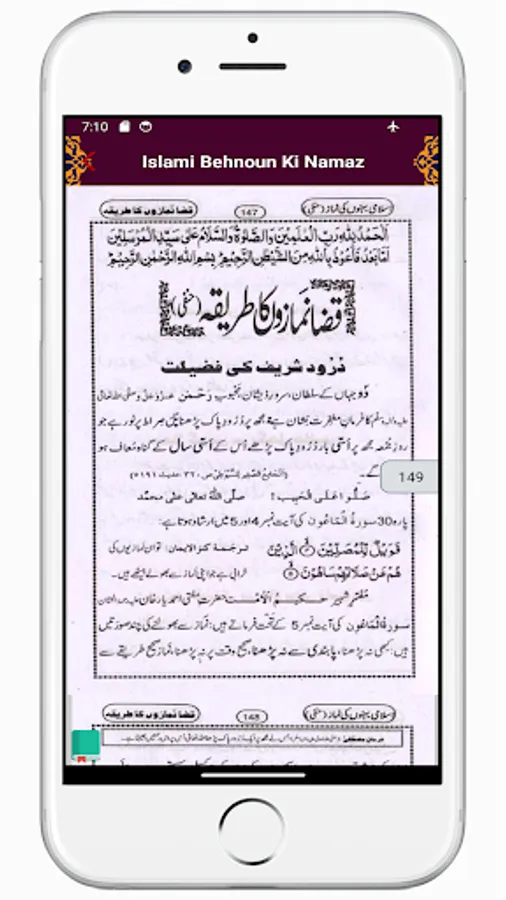 7:10
Islami Behnoun Ki Namaz
اسلامی بہنوں کی نماز (حنفی) 147 قضا نمازوں کا طریقہ
اَلْحَمْدُ لِلّٰهِ رَبِّ الْعٰلَمِیْنَ وَالصَّلٰوةُ وَالسَّلَامُ عَلٰی سَیِّدِ الْمُرْسَلِیْنَ
اَمَّا بَعْدُ فَاَعُوْذُ بِاللّٰهِ مِنَ الشَّیْطٰنِ الرَّجِیْمِ بِسْمِ اللّٰهِ الرَّحْمٰنِ الرَّحِیْمِ
قضا نمازوں کا طریقہ (حنفی)
دُرُود شریف کی فضیلت
دو جہاں کے سلطان، سرورِ ذیشان، محبوبِ رحمٰن عزوجل وصلی اللہ تعالیٰ
علیہ والہ وسلم کا فرمانِ مغفرت نشان ہے، مجھ پر دُرُودِ پاک پڑھنا پل صراط پر نور ہے جو
روزِ جمعہ مجھ پر اَسّی بار دُرُودِ پاک پڑھے اُس کے اَسّی سال کے گناہ معاف ہو
149
گے۔
صَلُّوْا عَلَی الْحَبِیْب! صلَّی اللہُ تعالٰی علٰی محمَّد
پارہ 30 سورۃُ الْمَاعُون کی آیت نمبر 4 اور 5 میں ارشاد ہوتا ہے:
فَوَیْلٌ لِّلْمُصَلِّیْنَ ﴿۴﴾ الَّذِیْنَ ترجمۂ کنز الایمان: تو ان نمازیوں کی
هُمْ عَنْ صَلَاتِهِمْ سَاهُوْنَ ﴿۵﴾ خرابی ہے جو اپنی نماز سے بھولے بیٹھے ہیں۔
مُفَسِّرِ شہیر حکیمُ الْاُمَّت حضرتِ مفتی احمد یار خان
سورۃُ الْمَاعُون کی آیت نمبر 5 کے تحت فرماتے ہیں: نماز سے بھولنے کی چند صورتیں
ہیں: کبھی نہ پڑھنا، پابندی سے نہ پڑھنا، صحیح وقت پر نہ پڑھنا، نماز صحیح طریقے سے
اسلامی بہنوں کی نماز (حنفی) 148 قضا نمازوں کا طریقہ